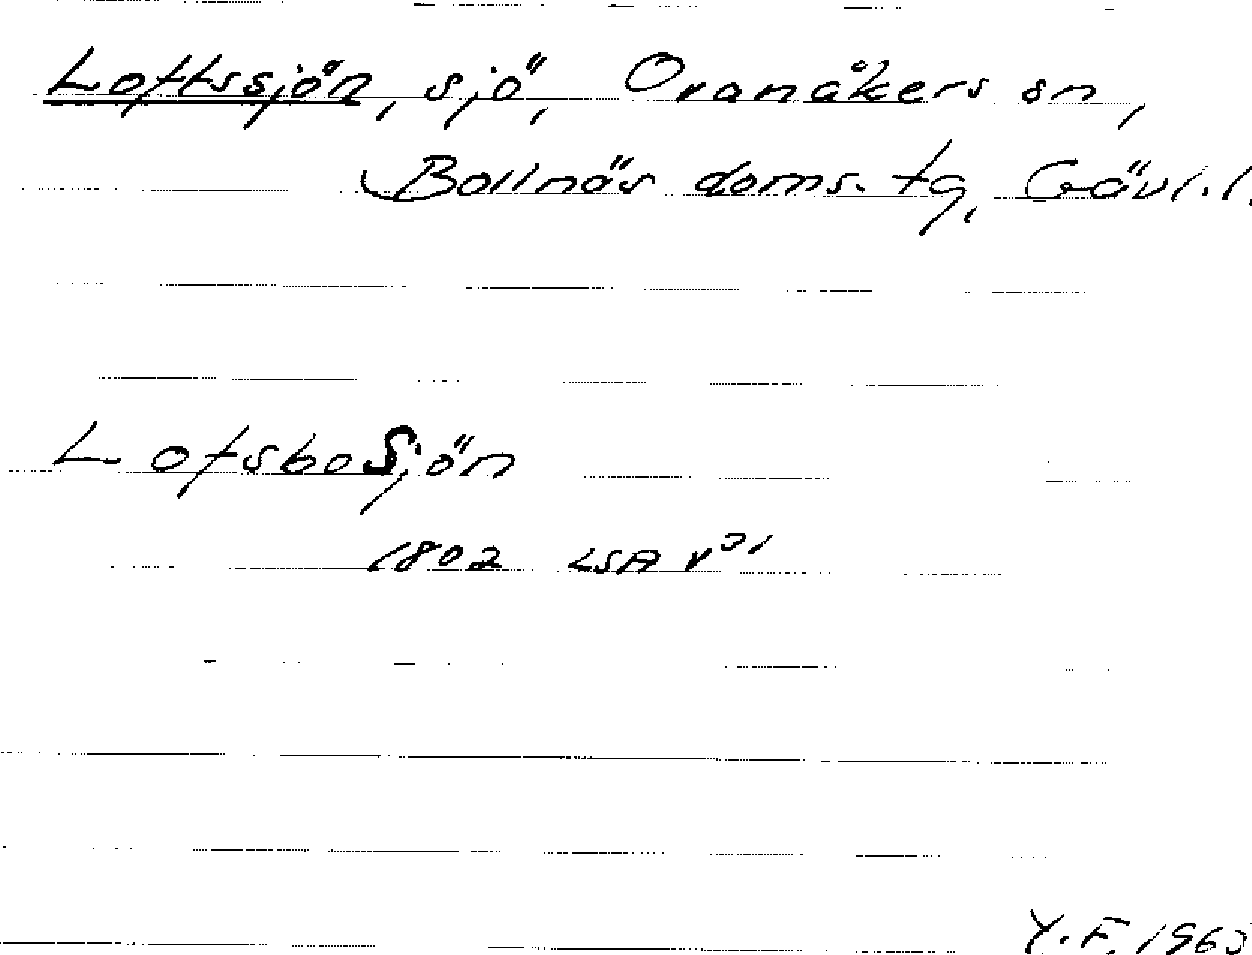 Loftssjön, sjö, Ovanåkers sn,
Bollnäs doms. tg, Gävl.l.
LofsboSjön
1802 LSA V31
Y.F. 1963